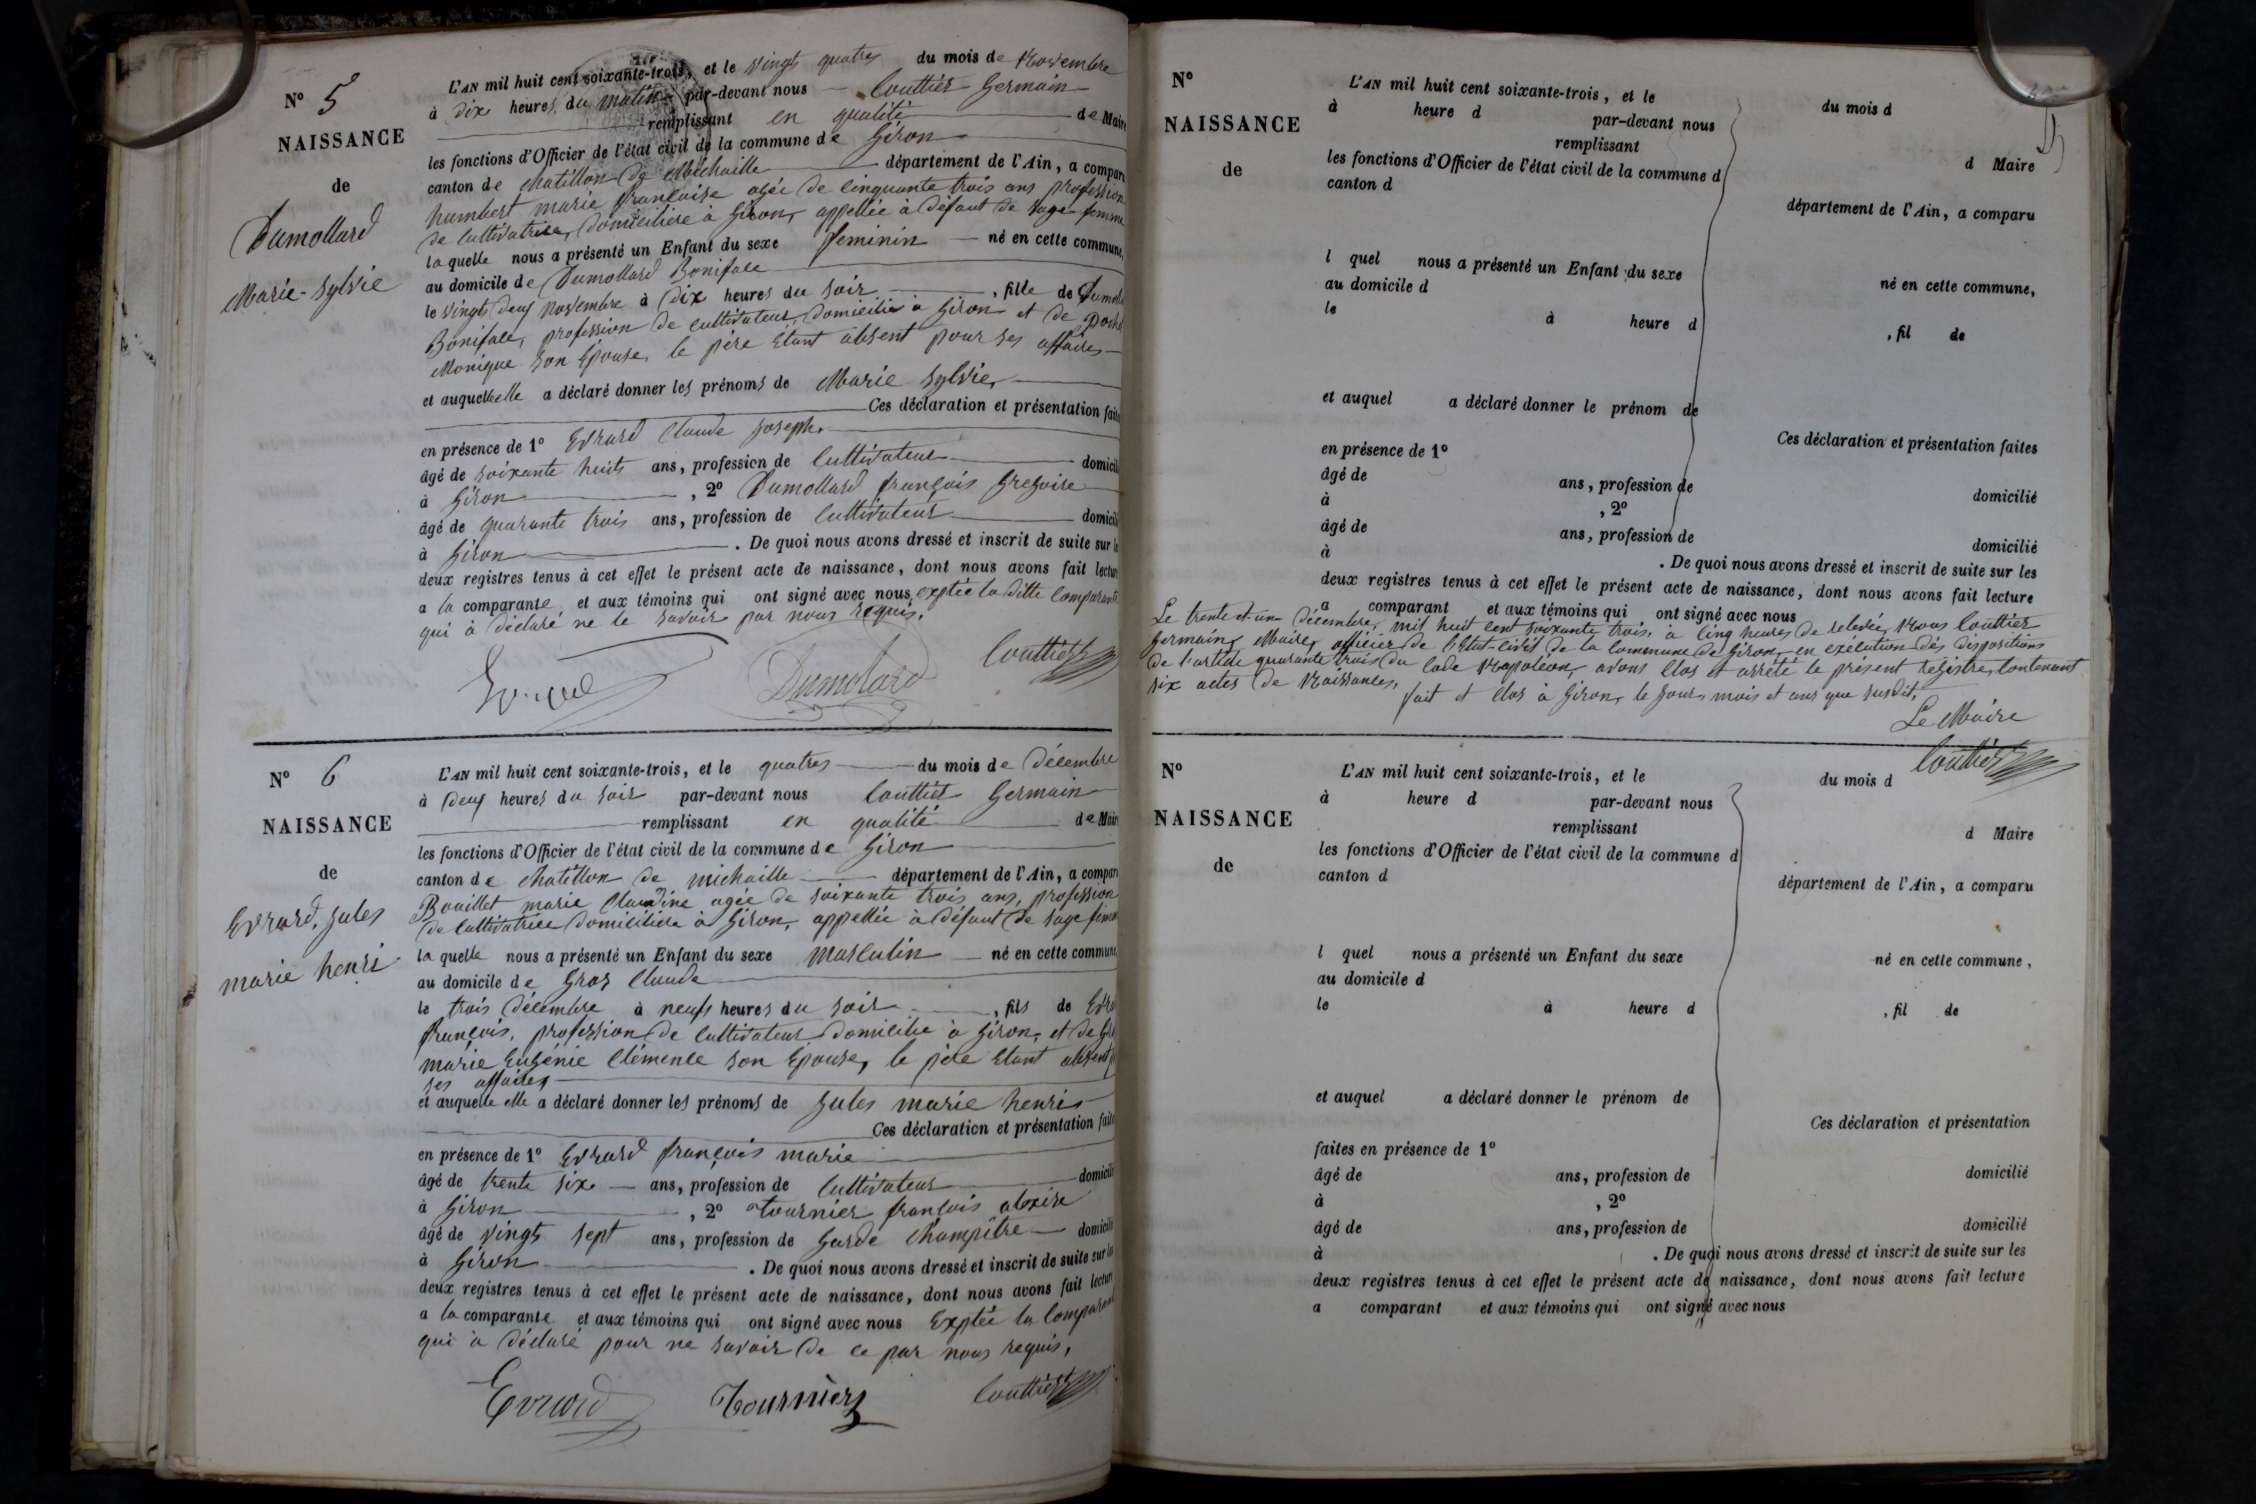 N° 5
NAISSANCE
de
Dumollard
Marie-Sylvie
L'AN mil huit cent soixante-trois, et le vingt quatres du mois de Novembre
à dix heures du matin par-devant nous Couttier Germain
remplissant en qualité de Maire
les fonctions d'Officier de l'état civil de la commune de Giron
canton de Chatillon de Michaille département de l'Ain, a comparu
humbert marie françoise agée de cinquante trois ans profession
de cultivatrice, domicilière à Giron, appellée à défaut de sage femme
laquelle nous a présenté un Enfant du sexe feminin né en cette commune,
au domicile de Dumollard Boniface
le vingt deux Novembre à dix heures du soir, fille de
Boniface, profession de cultivateur domicilié à Giron et de
Monique son Épouse, le père Étant absent pour ses affaires
et auquel elle a déclaré donner les prénoms de Marie Sylvie,
Ces déclaration et présentation faites
en présence de 1° Evrard Claude Joseph.
âgé de soixante huits ans, profession de cultivateur domicilié
à Giron, 2° Dumollard françois Gregoire
âgé de quarante trois ans, profession de cultivateur domicilié
à Giron. De quoi nous avons dressé et inscrit de suite sur les
deux registres tenus à cet effet le présent acte de naissance, dont nous avons fait lecture
a la comparante, et aux témoins qui ont signé avec nous, exptée la ditte comparante
qui à déclaré ne le savoir par nous requis.
Dumolard
Couttier
N° 6
NAISSANCE
de
Evrard, Jules
marie henri
L'AN mil huit cent soixante-trois, et le quatres du mois de décembre
à deux heures du soir par-devant nous Couttier Germain
remplissant en qualité de Maire
les fonctions d'Officier de l'état civil de la commune de Giron
canton de Chatillon de michaille département de l'Ain, a comparu
Bouillet marie Claudine agée de soixante trois ans, profession
de cultivatrice domicilière à Giron, appellée à défaut de sage femme
laquelle nous a présenté un Enfant du sexe masculin né en cette commune,
au domicile de Gros Claude
le trois décembre à neufs heures du soir, fils de
françois, profession de cultivateur domicilié à Giron, et de
marie Eugénie Clémence son Épouse, le père Étant absent
ses affaires
et auquel elle a déclaré donner les prénoms de Jules marie henri
Ces déclaration et présentation faites
en présence de 1° Evrard françois marie
âgé de trente six ans, profession de cultivateur domicilié
à Giron, 2° Tournier françois alexise
âgé de vingt sept ans, profession de Garde Champître domicilié
à Giron. De quoi nous avons dressé et inscrit de suite sur les
deux registres tenus à cet effet le présent acte de naissance, dont nous avons fait lecture
a la comparante et aux témoins qui ont signé avec nous Exptée la comparante
qui à déclaré pour ne savoir de ce par nous requis,
Evrard Tournier Couttier
N°
NAISSANCE
de
L'AN mil huit cent soixante-trois, et le du mois d
à heure d par-devant nous
remplissant d Maire
les fonctions d'Officier de l'état civil de la commune d
canton d département de l'Ain, a comparu
l quel nous a présenté un Enfant du sexe né en cette commune,
au domicile d
le à heure d, fil de
et auquel a déclaré donner le prénom de
Ces déclaration et présentation faites
en présence de 1°
âgé de ans, profession de domicilié
à, 2°
âgé de ans, profession de domicilié
à. De quoi nous avons dressé et inscrit de suite sur les
deux registres tenus à cet effet le présent acte de naissance, dont nous avons fait lecture
a comparant et aux témoins qui ont signé avec nous
Le trente et un décembre, mil huit cent soixante trois, à cinq heures de relevée, Nous Couttier
Germain, Maire, officier de l'État-civil de la commune de Giron, en exécution des dispositions
de l'article quarante trois du Code Napoléon, avons clos et arrêté le présent registre, contenant
six actes de Naissances,
fait et clos à Giron, le jour, mois et ans que susdit,
Le Maire
Couttier
N°
NAISSANCE
de
L'AN mil huit cent soixante-trois, et le du mois d
à heure d par-devant nous
remplissant d Maire
les fonctions d'Officier de l'état civil de la commune d
canton d département de l'Ain, a comparu
l quel nous a présenté un Enfant du sexe né en cette commune,
au domicile d
le à heure d, fil de
et auquel a déclaré donner le prénom de
Ces déclaration et présentation
faites en présence de 1°
âgé de ans, profession de domicilié
à, 2°
âgé de ans, profession de domicilié
à. De quoi nous avons dressé et inscrit de suite sur les
deux registres tenus à cet effet le présent acte de naissance, dont nous avons fait lecture
a comparant et aux témoins qui ont signé avec nous